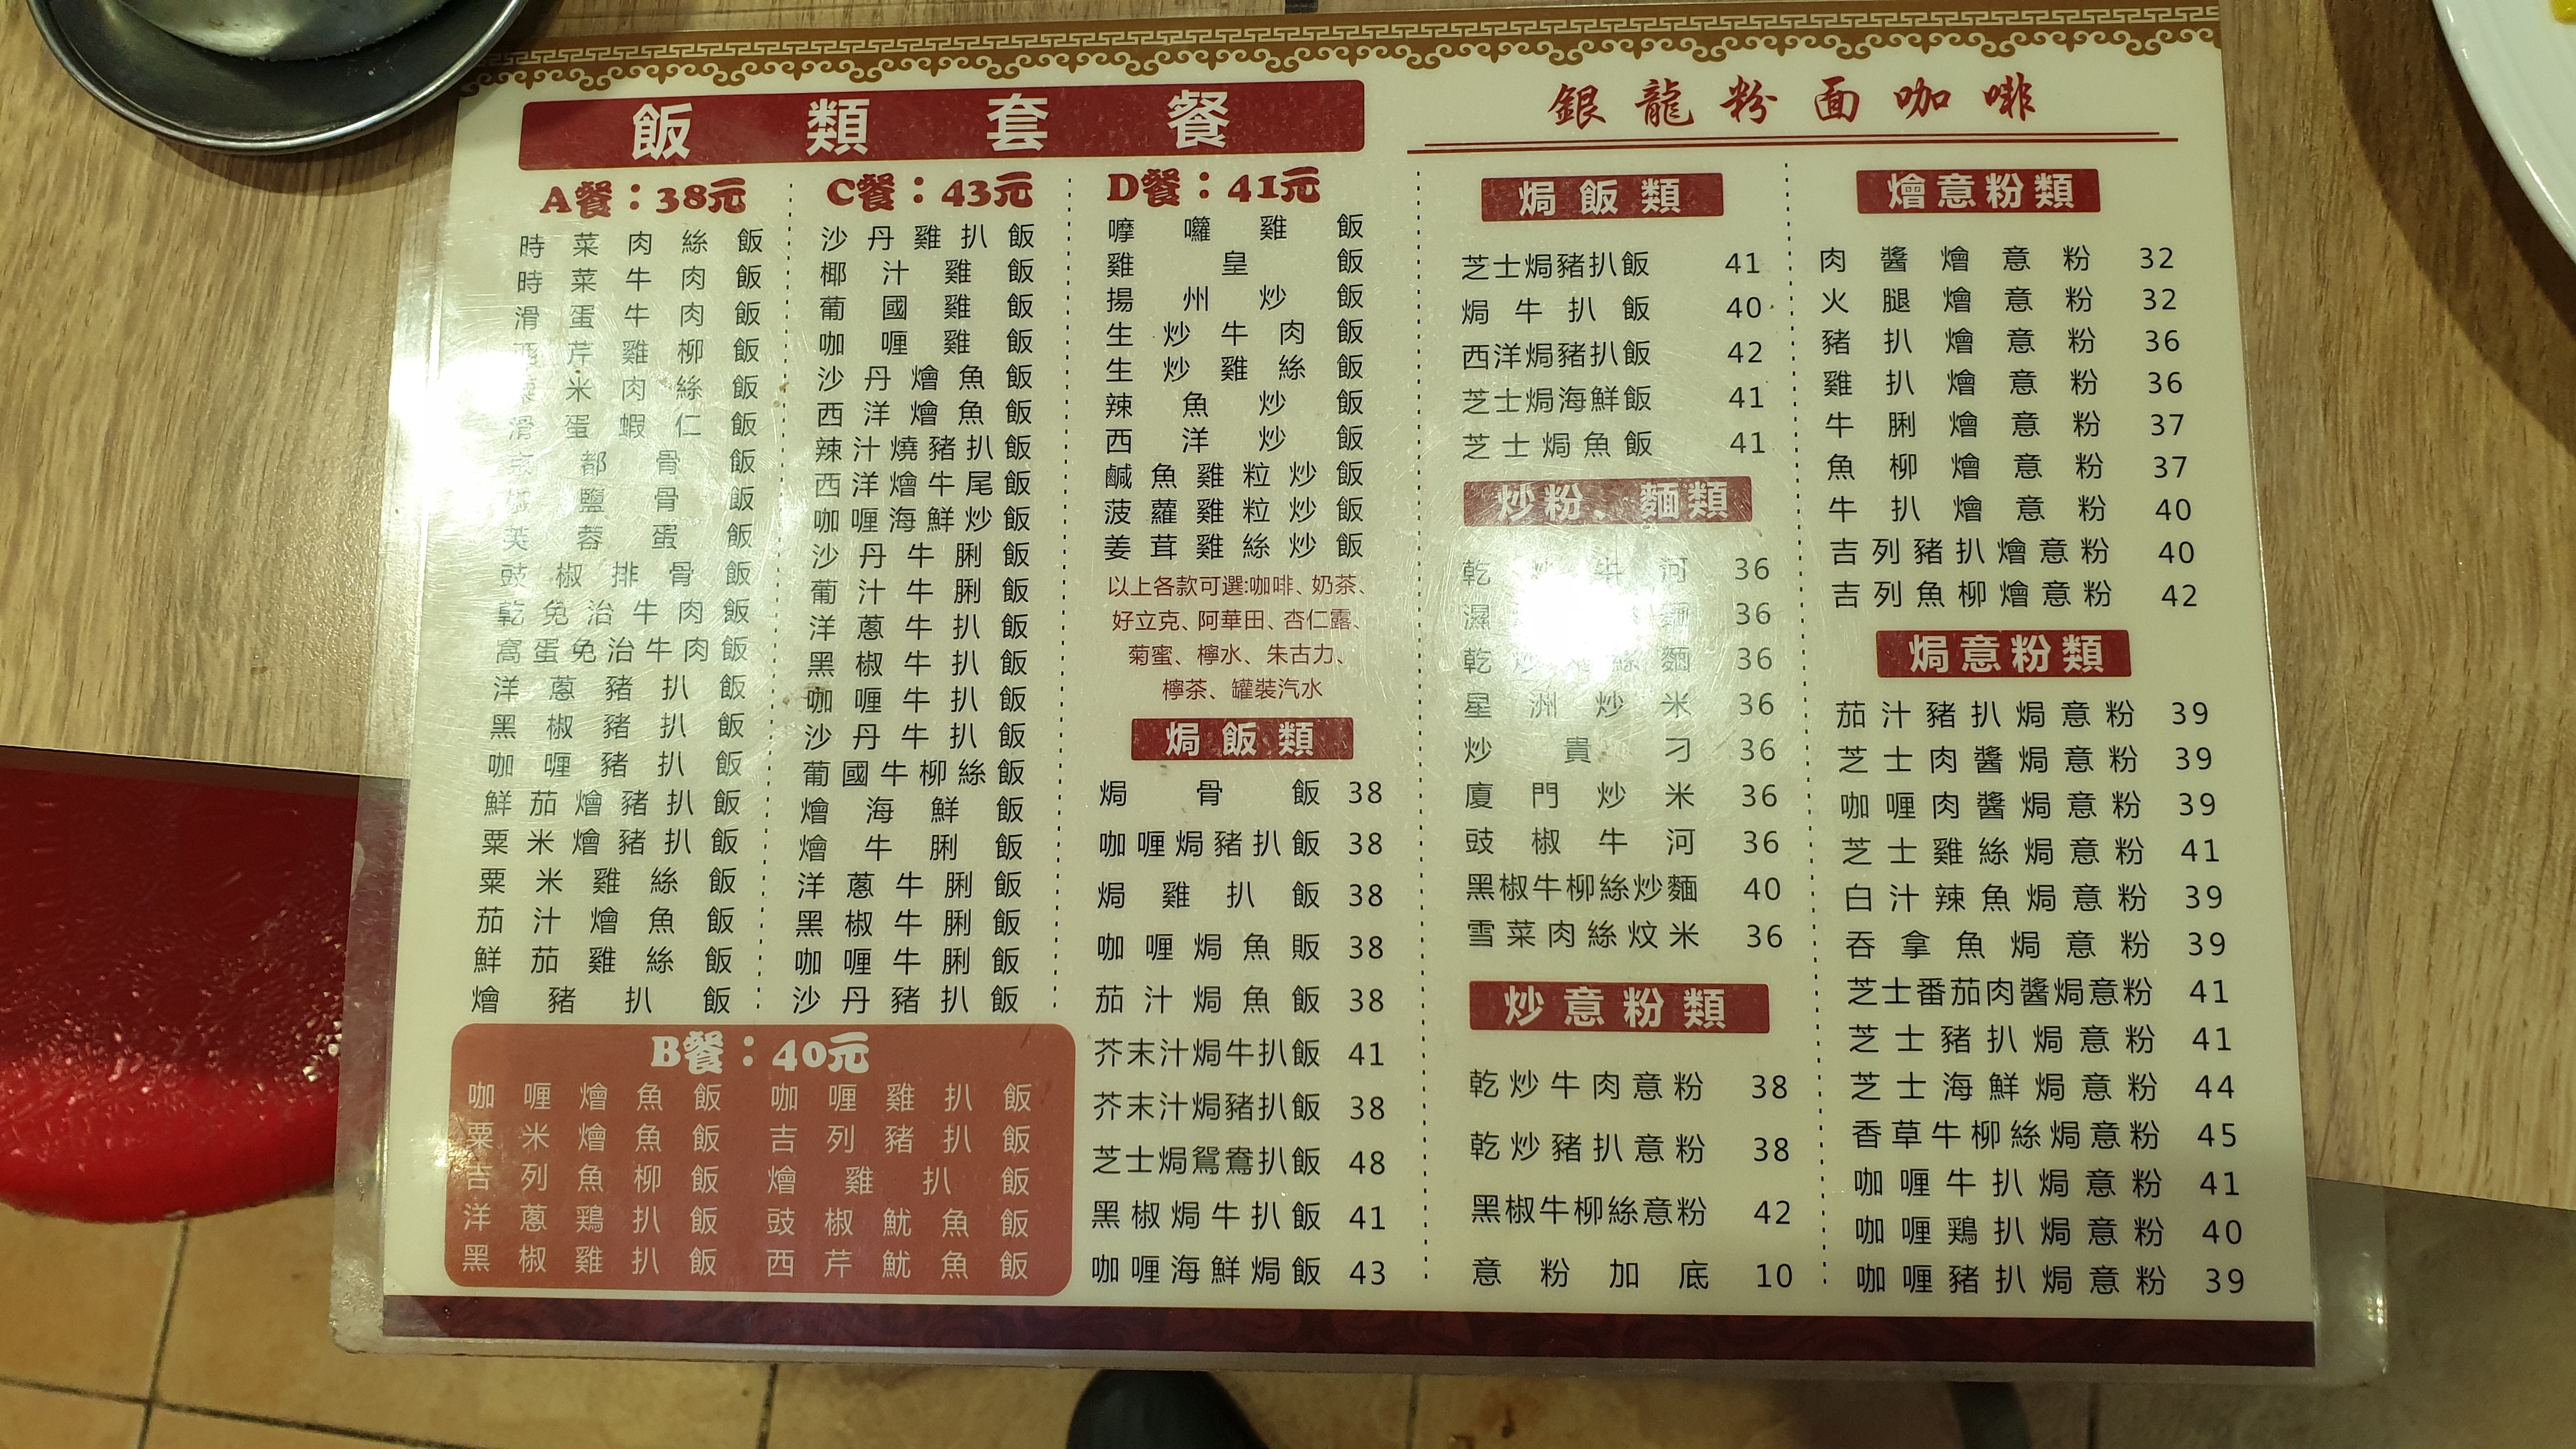 飯類套餐
A餐：38元
時菜肉絲飯
時菜牛肉飯
滑蛋牛肉飯
西芹雞柳飯
粟米肉絲飯
滑蛋蝦仁飯
都骨飯
鹽骨飯
芙蓉蛋飯
豉椒排骨飯
乾免治牛肉飯
窩蛋免治牛肉飯
洋蔥豬扒飯
黑椒豬扒飯
咖喱豬扒飯
鮮茄燴豬扒飯
粟米燴豬扒飯
粟米雞絲飯
茄汁燴魚飯
鮮茄雞絲飯
燴豬扒飯
C餐：43元
沙丹雞扒飯
椰汁雞飯
葡國雞飯
咖喱雞飯
沙丹燴魚飯
西洋燴魚飯
辣汁燒豬扒飯
西洋燴牛尾飯
咖喱海鮮炒飯
沙丹牛脷飯
葡汁牛脷飯
洋蔥牛扒飯
黑椒牛扒飯
咖喱牛扒飯
沙丹牛扒飯
葡國牛柳絲飯
燴海鮮飯
燴牛脷飯
洋蔥牛脷飯
黑椒牛脷飯
咖喱牛脷飯
沙丹豬扒飯
B餐：40元
咖喱燴魚飯 咖喱雞扒飯
粟米燴魚飯 吉列豬扒飯
吉列魚柳飯 燴雞扒飯
洋蔥鶏扒飯 豉椒魷魚飯
黑椒雞扒飯 西芹魷魚飯
D餐：41元
嚤囉雞飯
雞皇飯
揚州炒飯
生炒牛肉飯
生炒雞絲飯
辣魚炒飯
西洋炒飯
鹹魚雞粒炒飯
菠蘿雞粒炒飯
姜茸雞絲炒飯
以上各款可選:咖啡、奶茶、
好立克、阿華田、杏仁露、
菊蜜、檸水、朱古力、
檸茶、罐裝汽水
焗飯類
焗骨飯 38
咖喱焗豬扒飯 38
焗雞扒飯 38
咖喱焗魚販 38
茄汁焗魚飯 38
芥末汁焗牛扒飯 41
芥末汁焗豬扒飯 38
芝士焗鴛鴦扒飯 48
黑椒焗牛扒飯 41
咖喱海鮮焗飯 43
銀龍粉面咖啡
焗飯類
芝士焗豬扒飯 41
焗牛扒飯 40
西洋焗豬扒飯 42
芝士焗海鮮飯 41
芝士焗魚飯 41
炒粉、麵類
乾炒牛河 36
濕 麵 36
乾炒 絲麵 36
星洲炒米 36
炒貴刁 36
廈門炒米 36
豉椒牛河 36
黑椒牛柳絲炒麵 40
雪菜肉絲炆米 36
炒意粉類
乾炒牛肉意粉 38
乾炒豬扒意粉 38
黑椒牛柳絲意粉 42
意粉加底 10
燴意粉類
肉醬燴意粉 32
火腿燴意粉 32
豬扒燴意粉 36
雞扒燴意粉 36
牛脷燴意粉 37
魚柳燴意粉 37
牛扒燴意粉 40
吉列豬扒燴意粉 40
吉列魚柳燴意粉 42
焗意粉類
茄汁豬扒焗意粉 39
芝士肉醬焗意粉 39
咖喱肉醬焗意粉 39
芝士雞絲焗意粉 41
白汁辣魚焗意粉 39
吞拿魚焗意粉 39
芝士番茄肉醬焗意粉 41
芝士豬扒焗意粉 41
芝士海鮮焗意粉 44
香草牛柳絲焗意粉 45
咖喱牛扒焗意粉 41
咖喱鶏扒焗意粉 40
咖喱豬扒焗意粉 39